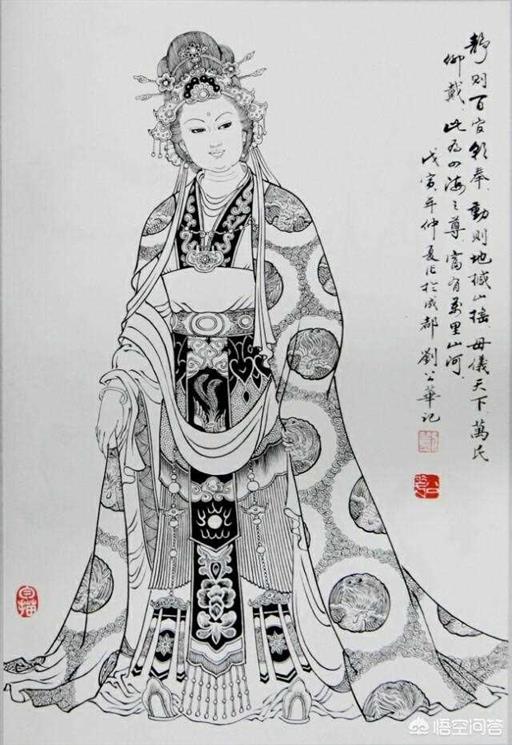 靜则百官朝奉動则地撼山摇母儀天下萬民
仰戴此为四海之尊富有万里山河
戊寅年仲夏作於成都劉公華记
白描
悟空问答